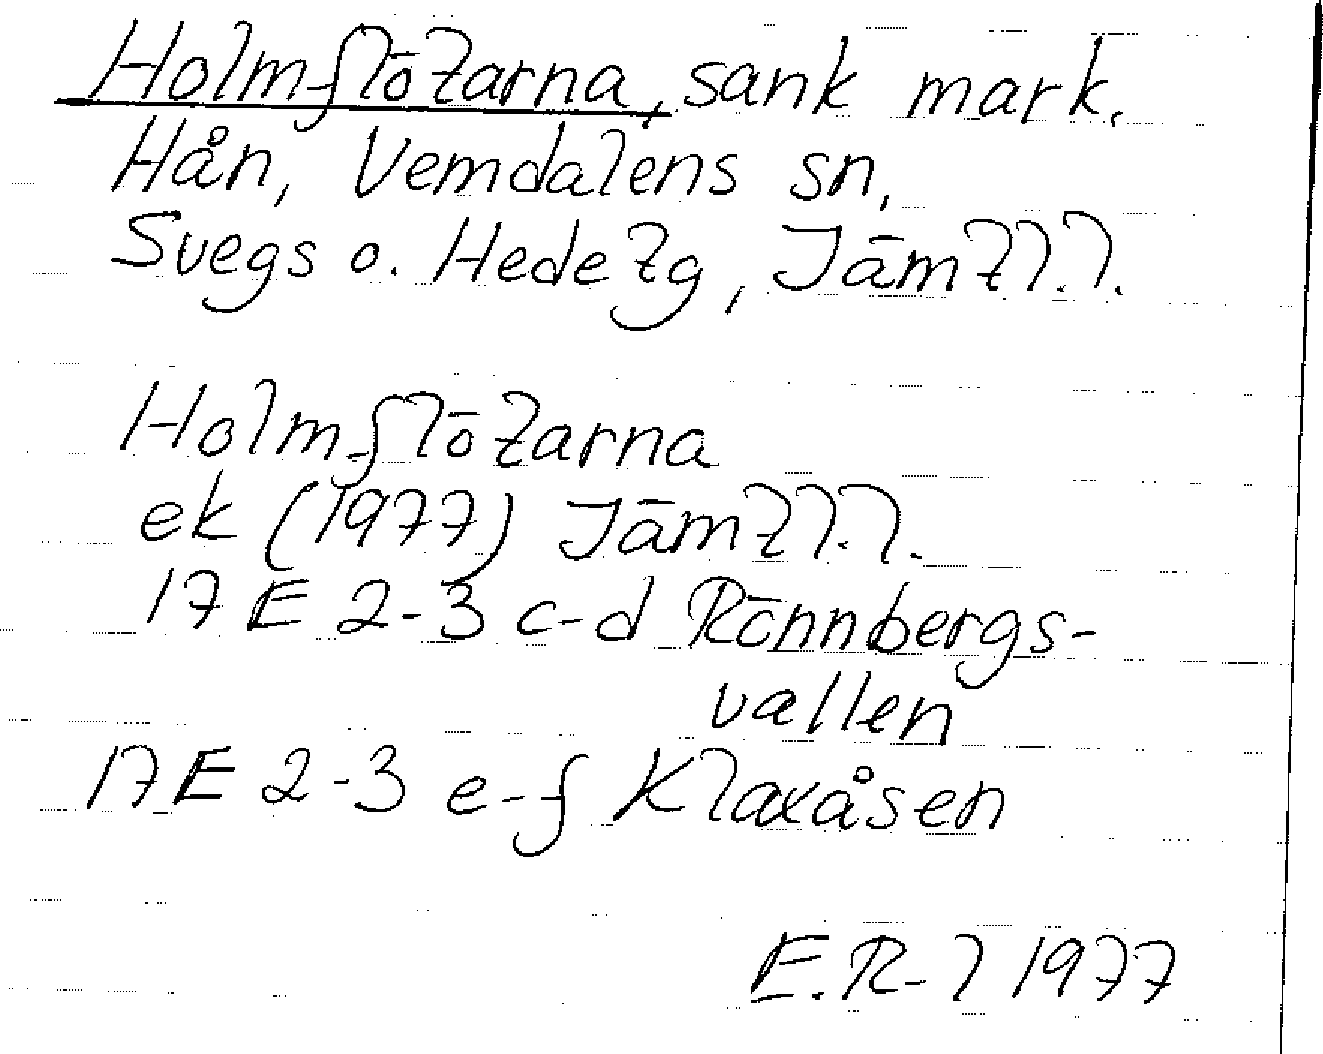 Holmflötarna, sank mark.
Hån, Vemdalens sn,
Svegs o. Hede tg, Jämtl.l.
Holmflötarna
ek (1977) Jämtl.l.
17 E 2-3 c-d Rönnbergs-
vallen
17 E 2-3 e-f Klaxåsen
E.R-l 1977